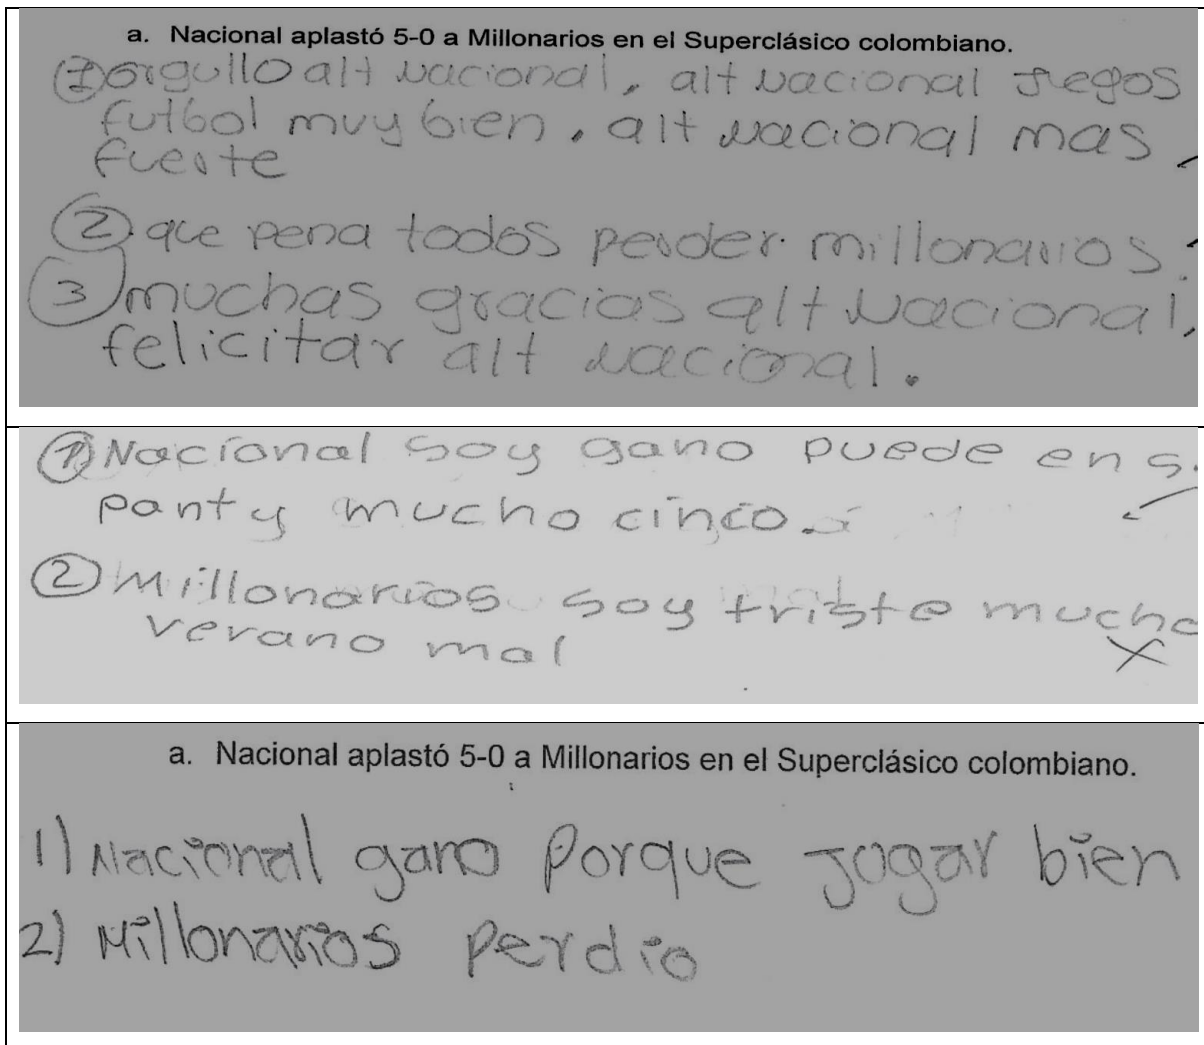 a. Nacional aplastó 5-0 a Millonarios en el Superclásico colombiano.
① orgullo alt nacional, alt nacional Juegos
futbol muy bien, alt nacional mas
fuerte
② que pena todos perder millonarios.
③ muchas gracias alt Nacional,
felicitar alt nacional.
① Nacional soy gano puede en s.
panty mucho cinco.
② Millonarios soy triste mucho
verano mal
a. Nacional aplastó 5-0 a Millonarios en el Superclásico colombiano.
1) Nacional gano Porque Jugar bien
2) Millonarios Perdio